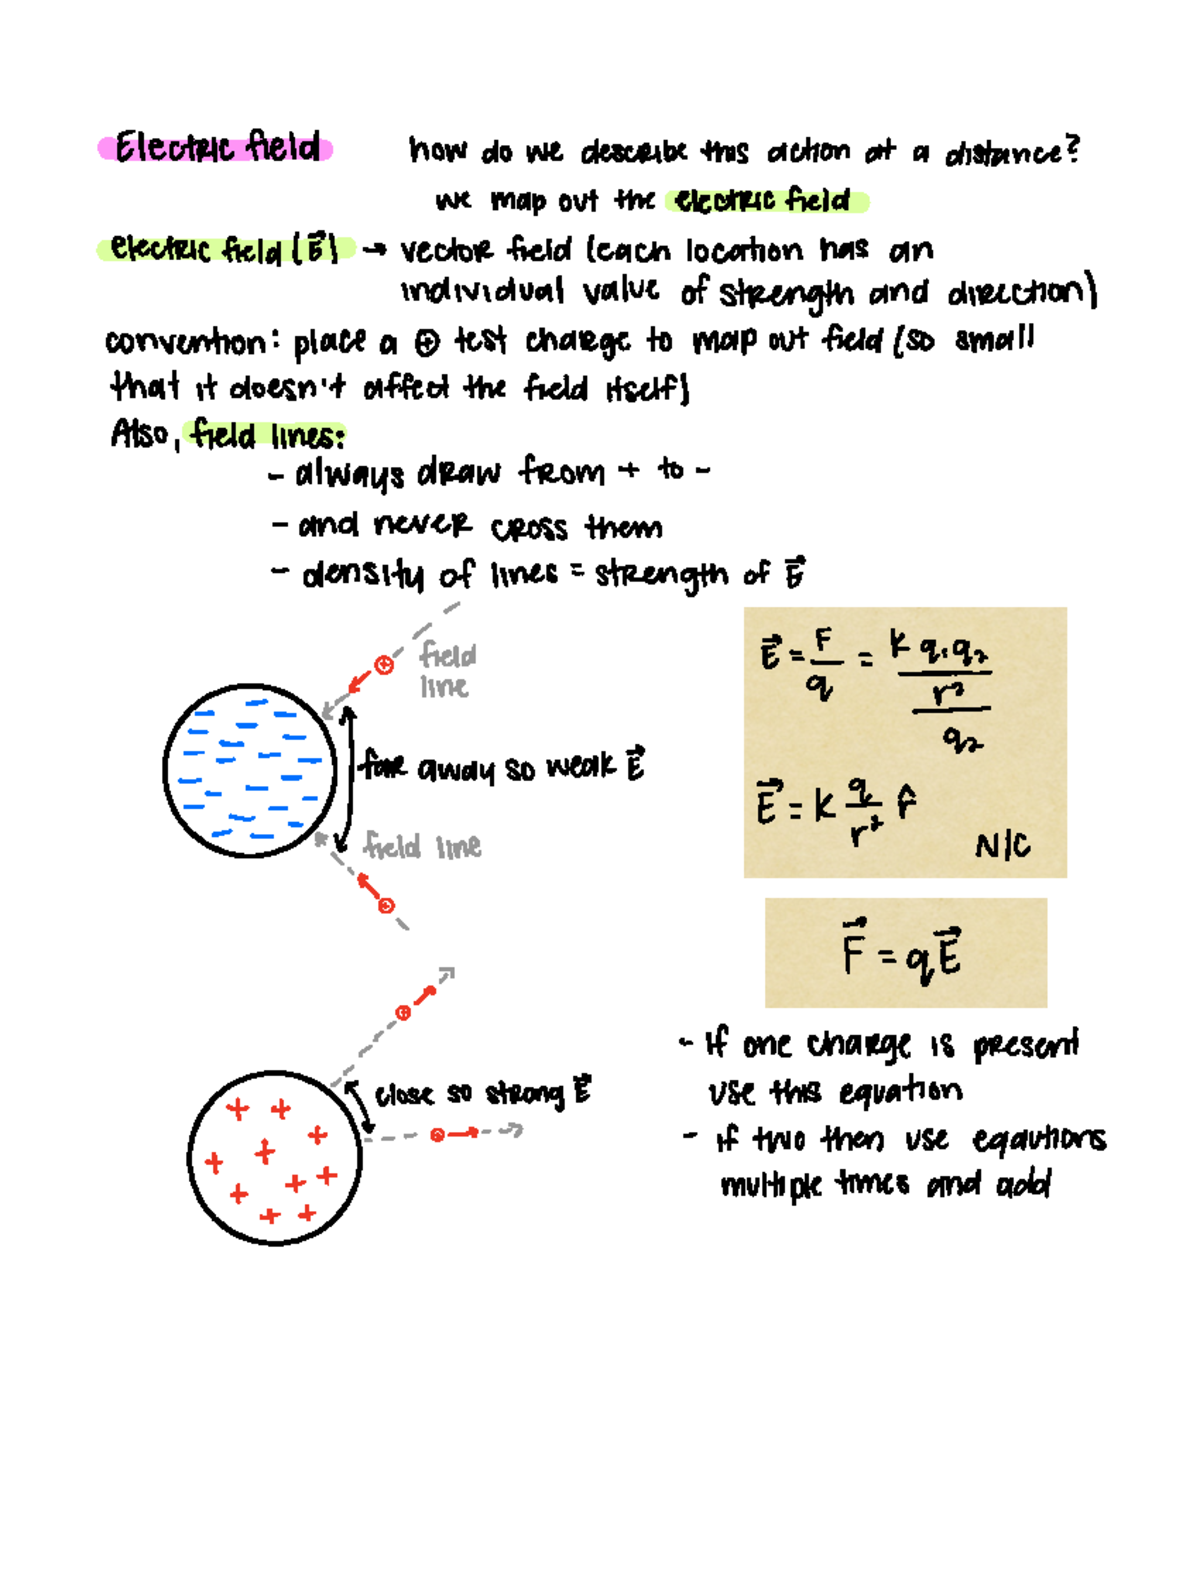 Electric field
how do we describe this action at a distance?
we map out the electric field
electric field (E⃗) → vector field (each location has an
individual value of strength and direction)
convention: place a ⊕ test charge to map out field (so small
that it doesn't affect the field itself)
Also, field lines:
- always draw from + to -
- and never cross them
- density of lines = strength of E⃗
field
line
far away so weak E⃗
field line
E⃗ = F/q = (k q₁q₂/r²)/q₂
E⃗ = k q/r² r̂
N/C
F⃗ = qE⃗
close so strong E⃗
- if one charge is present
use this equation
- if two then use eqautions
multiple times and add